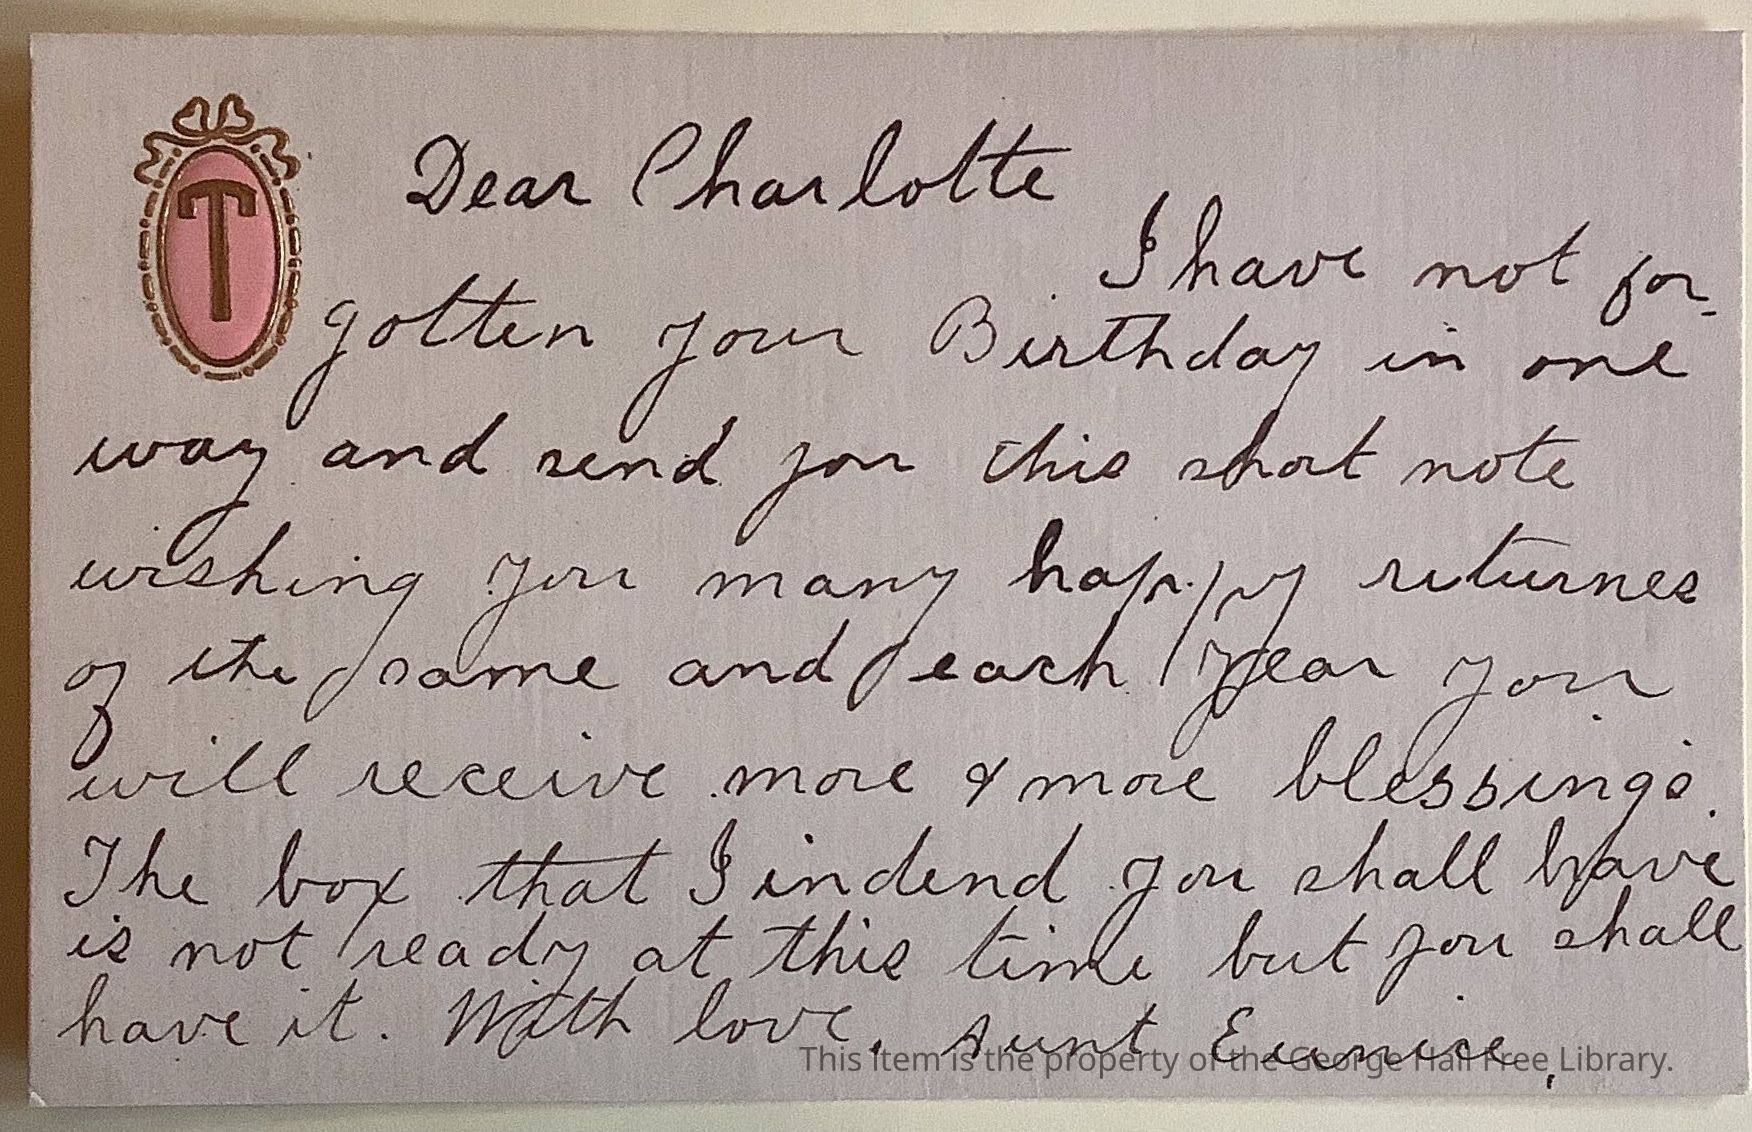 T
Dear Charlotte
I have not for-
gotten your Birthday in one
way and send you this short note
wishing you many happy returnes
of the same and each year you
will receive more & more blessings.
The box that I indend you shall have
is not ready at this time but you shall
have it. With love, Aunt Eunice,
This item is the property of the George Hail Free Library.